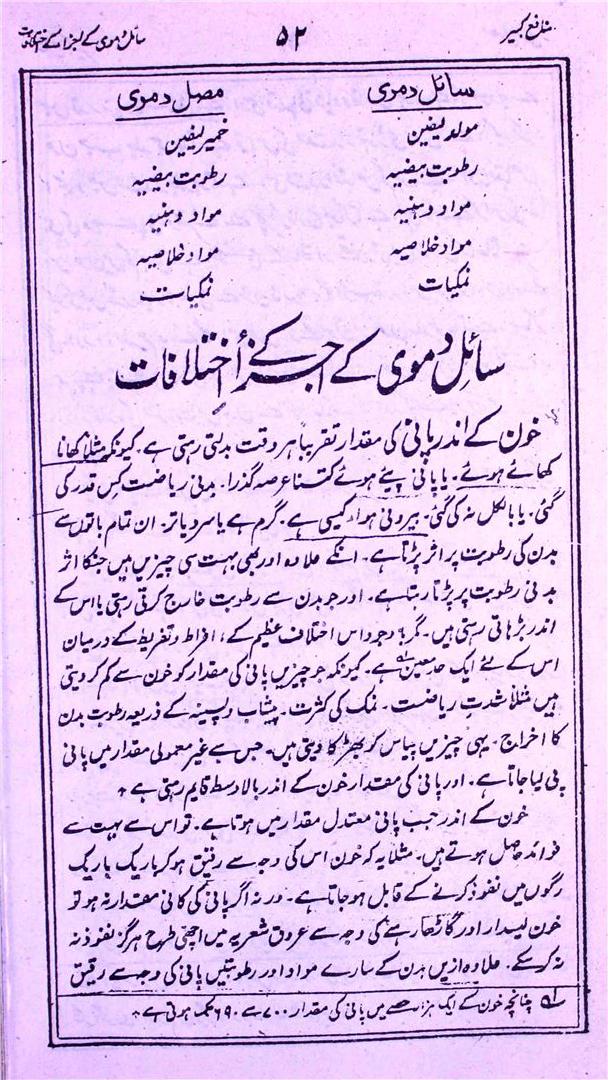 منافع کبیر
۵۲
سائل دموی کے اجزاء کے اختلافات
سائل دموی
مصل دموی
مولد لیفین
خمیر لیفین
رطوبت بیضیہ
رطوبت بیضیہ
مواد دہنیہ
مواد دہنیہ
مواد خلاصیہ
مواد خلاصیہ
نمکیات
نمکیات
سائل دموی کے اجزأ کے اختلافات
خون کے اندر پانی کی مقدار تقریباً ہر وقت بدلتی رہتی ہے۔ کیونکہ مثلاً کھانا
کھائے ہوئے۔ یا پانی پئے ہوئے کتنا عرصہ گذرا۔ بدنی ریاضت کس قدر کی
گئی۔ یا بالکل نہ کی گئی۔ بیرونی ہواء کیسی ہے۔ گرم ہے یا سرد یا تر۔ ان تمام باتوں سے
بدن کی رطوبت پر اثر پڑتا ہے۔ انکے علاوہ اور بھی بہت سی چیزیں ہیں جنکا اثر
بدنی رطوبت پر پڑتا رہتا ہے۔ اور جو بدن سے رطوبت خارج کرتی رہتی یا اس کے
اندر بڑہاتی رہتی ہیں۔ مگر باوجود اس اختلاف عظیم کے، افراط و تفریط کے درمیان
اس کے لئے ایک حد معین ہے۔ کیونکہ جو چیزیں پانی کی مقدار کو خون سے کم کر دیتی
ہیں مثلاً شدتِ ریاضت۔ نمک کی کثرت۔ پیشاب و پسینہ کے ذریعہ رطوبت بدن
کا اخراج۔ یہی چیزیں پیاس کو بھڑکا دیتی ہیں۔ جس سے غیر معمولی مقدار میں پانی
پی لیا جاتا ہے۔ اور پانی کی مقدار خون کے اندر بالاوسط قایم رہتی ہے ؞
خون کے اندر جب پانی معتدل مقدار میں ہوتا ہے۔ تو اس سے بہت سے
فوائد حاصل ہوتے ہیں۔ مثلاً یہ کہ خون اس کی وجہ سے رقیق ہو کر باریک باریک
رگوں میں نفوذ کرنے کے قابل ہو جاتا ہے۔ ورنہ اگر پانی کی کافی مقدار نہ ہو تو
خون لیسدار اور گاڑھا رہنے کی وجہ سے عروق شعریہ میں اچھی طرح ہرگز نفوذ نہ
نہ کرسکے۔ علاوہ ازیں بدن کے سارے مواد اور رطوبتیں پانی کی وجہ سے رقیق
لہ چنانچہ خون کے ایک ہزار حصے میں پانی کی مقدار ۷۰۰ سے ۶۹۰ تک ہوتی ہے ؞